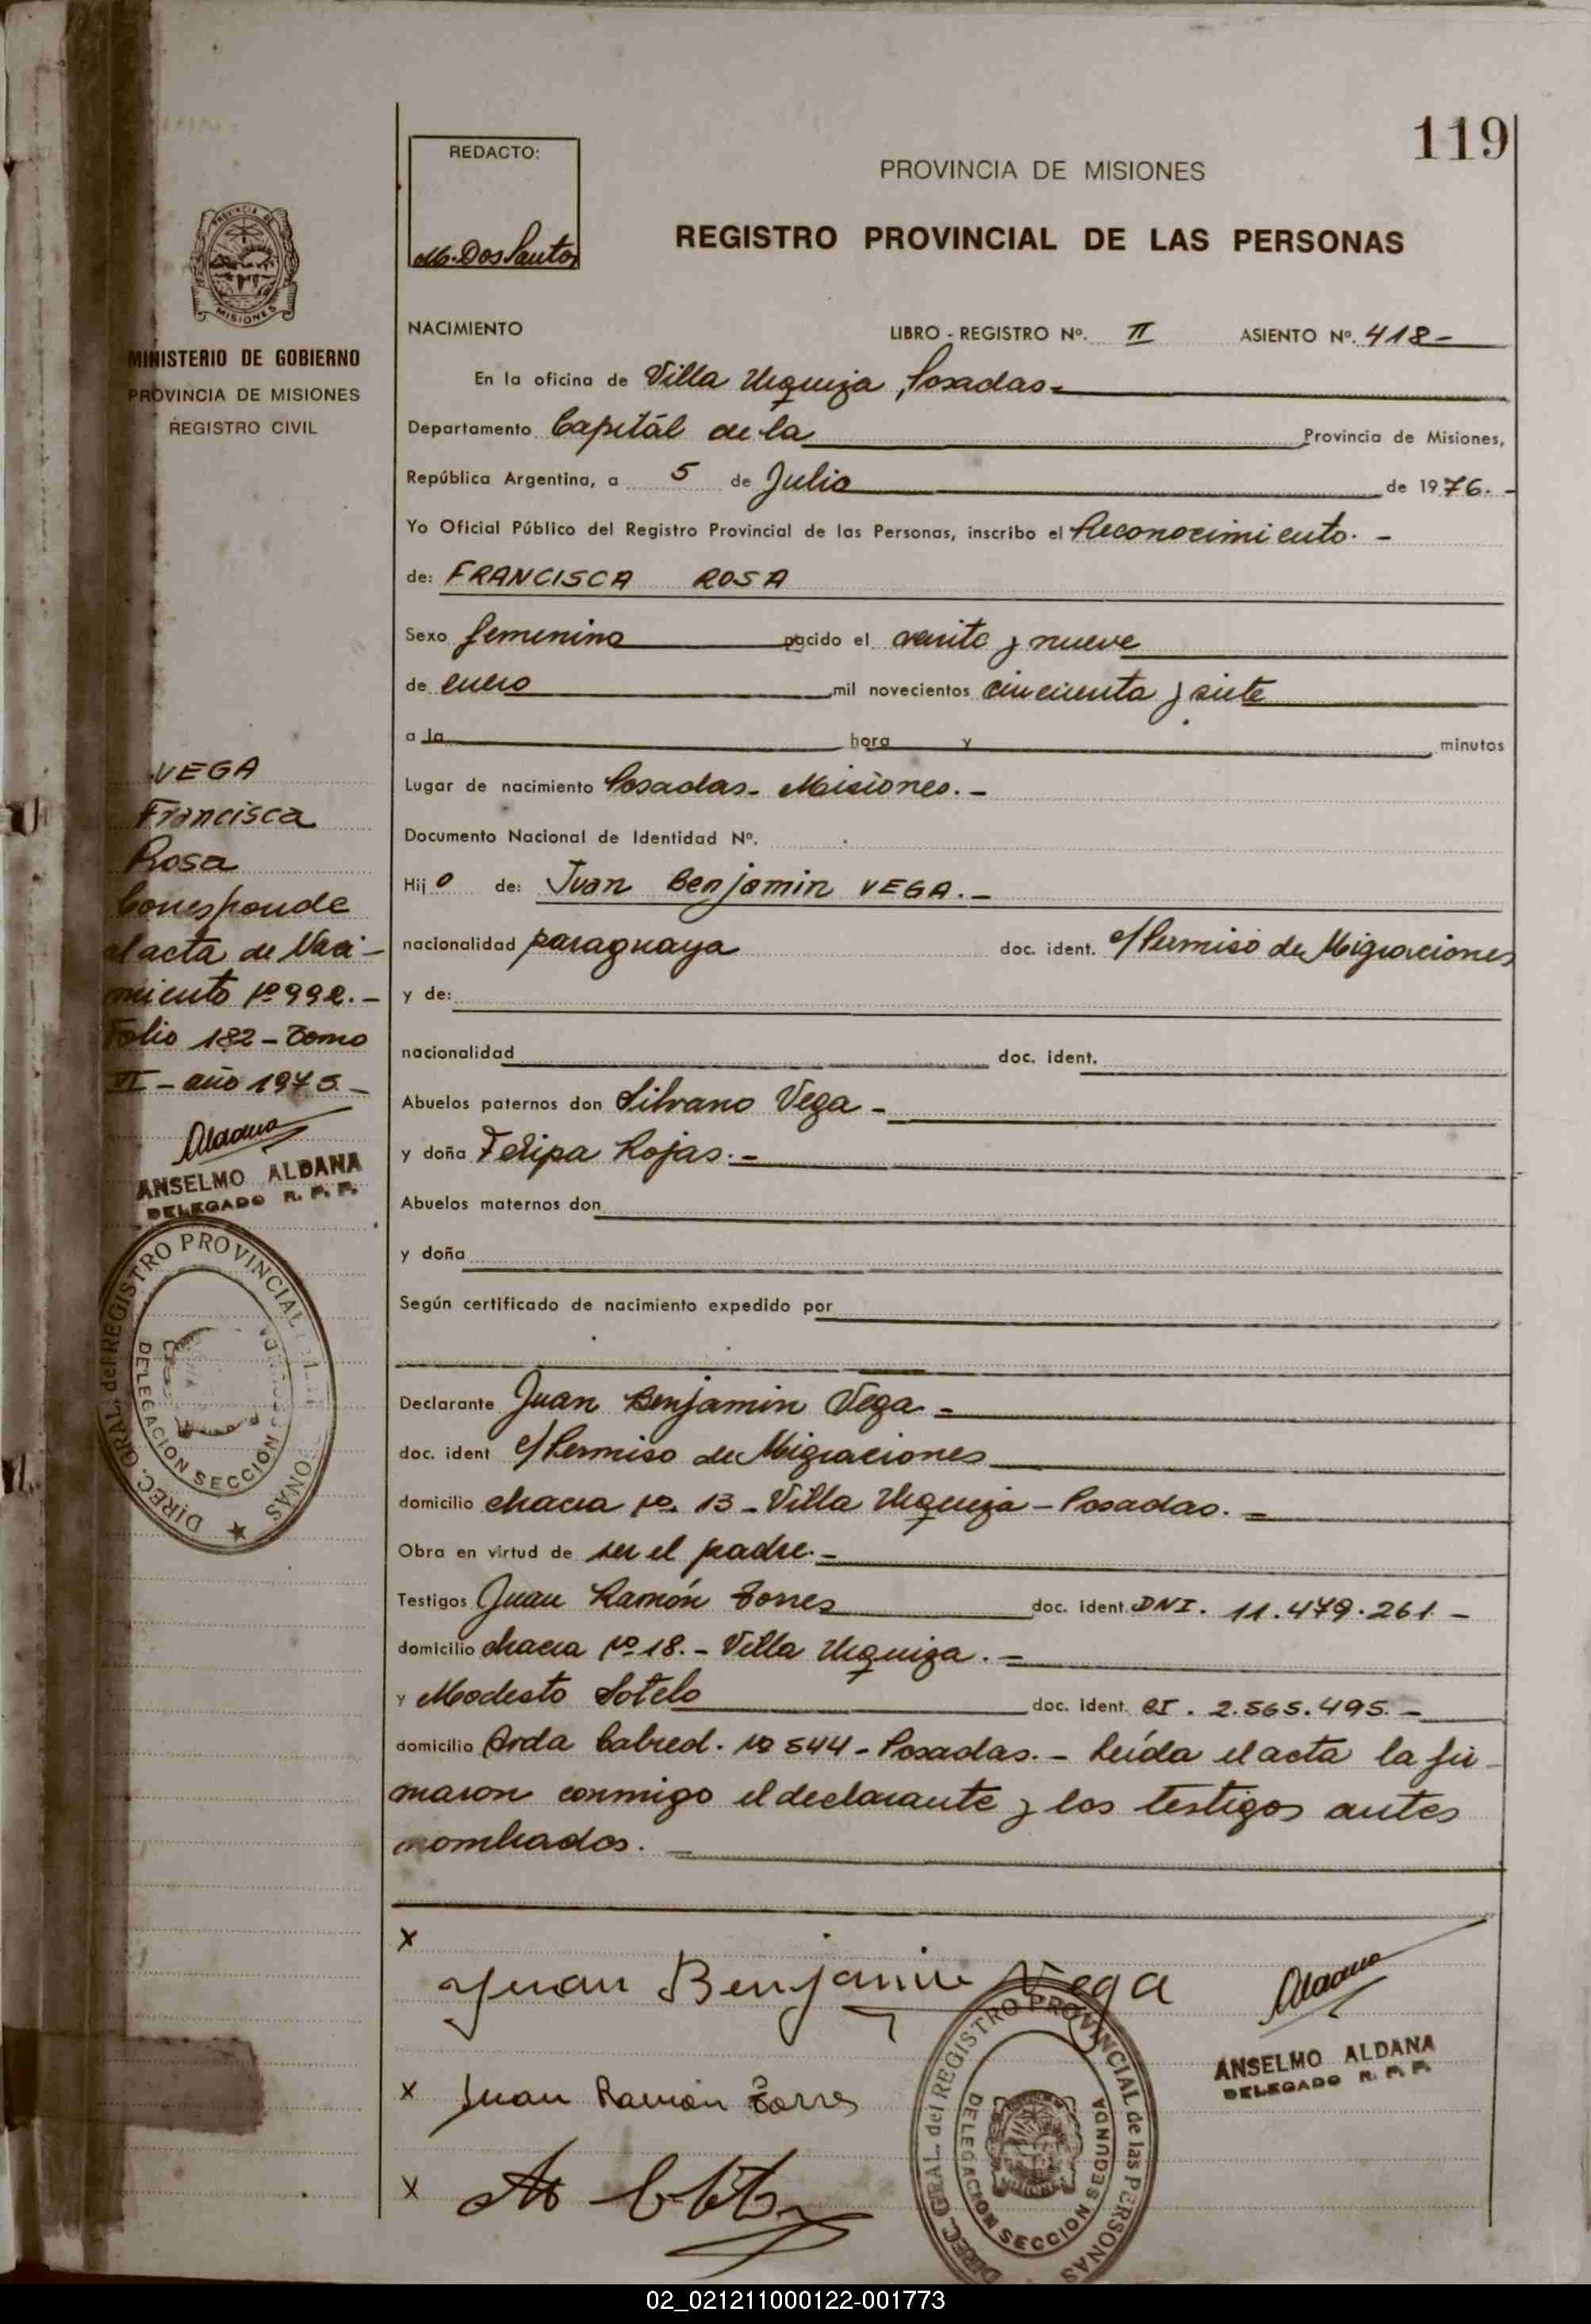 119
REDACTO:
M. Dos Santos
PROVINCIA DE MISIONES
REGISTRO PROVINCIAL DE LAS PERSONAS
PROVINCIA DE
MISIONES
MINISTERIO DE GOBIERNO
PROVINCIA DE MISIONES
REGISTRO CIVIL
NACIMIENTO LIBRO - REGISTRO Nº. II ASIENTO Nº. 418-
En la oficina de Villa Urquiza, Posadas-
Departamento Capitál de la Provincia de Misiones,
República Argentina, a 5 de Julio de 1976. -
Yo Oficial Público del Registro Provincial de las Personas, inscribo el Reconocimiento. -
de: FRANCISCA ROSA
Sexo femenino nacido el veinte y nueve
de enero mil novecientos cincuenta y siete
a la hora y minutos
Lugar de nacimiento Posadas- Misiones. -
Documento Nacional de Identidad Nº.
Hijo de: Juan Benjamin VEGA. -
nacionalidad paraguaya doc. ident. c/Permiso de Migraciones
y de:
nacionalidad doc. ident.
Abuelos paternos don Silvano Vega -
y doña Felipa Rojas. -
Abuelos maternos don
y doña
Según certificado de nacimiento expedido por
Declarante Juan Benjamin Vega -
doc. ident c/Permiso de Migraciones
domicilio chacra Nº. 13 - Villa Urquiza - Posadas. -
Obra en virtud de ser el padre. -
Testigos Juan Ramón Torres doc. ident. DNI. 11.479.261 -
domicilio chacra Nº 18. - Villa Urquiza. -
y Modesto Sotelo doc. ident. CI. 2.565.495. -
domicilio Avda Cabred. Nº 544 - Posadas. - Leída el acta la fir-
maron conmigo el declarante y los testigos antes
nombrados.
VEGA
Francisca
Rosa
Corresponde
al acta de Naci-
miento Nº 992. -
Folio 182 - Tomo
VI - año 1975 -
Aldana
ANSELMO ALDANA
DELEGADO R. P. P.
DIREC. GRAL. del REGISTRO PROVINCIAL PERSONAS
DELEGACION SECCION SEGUNDA
x
Juan Benjamin Vega
x Juan Ramón Torres
x
Aldana
ANSELMO ALDANA
DELEGADO R. P. P.
DIREC. GRAL. del REGISTRO PROVINCIAL de las PERSONAS
DELEGACION SECCION SEGUNDA
02_021211000122-001773